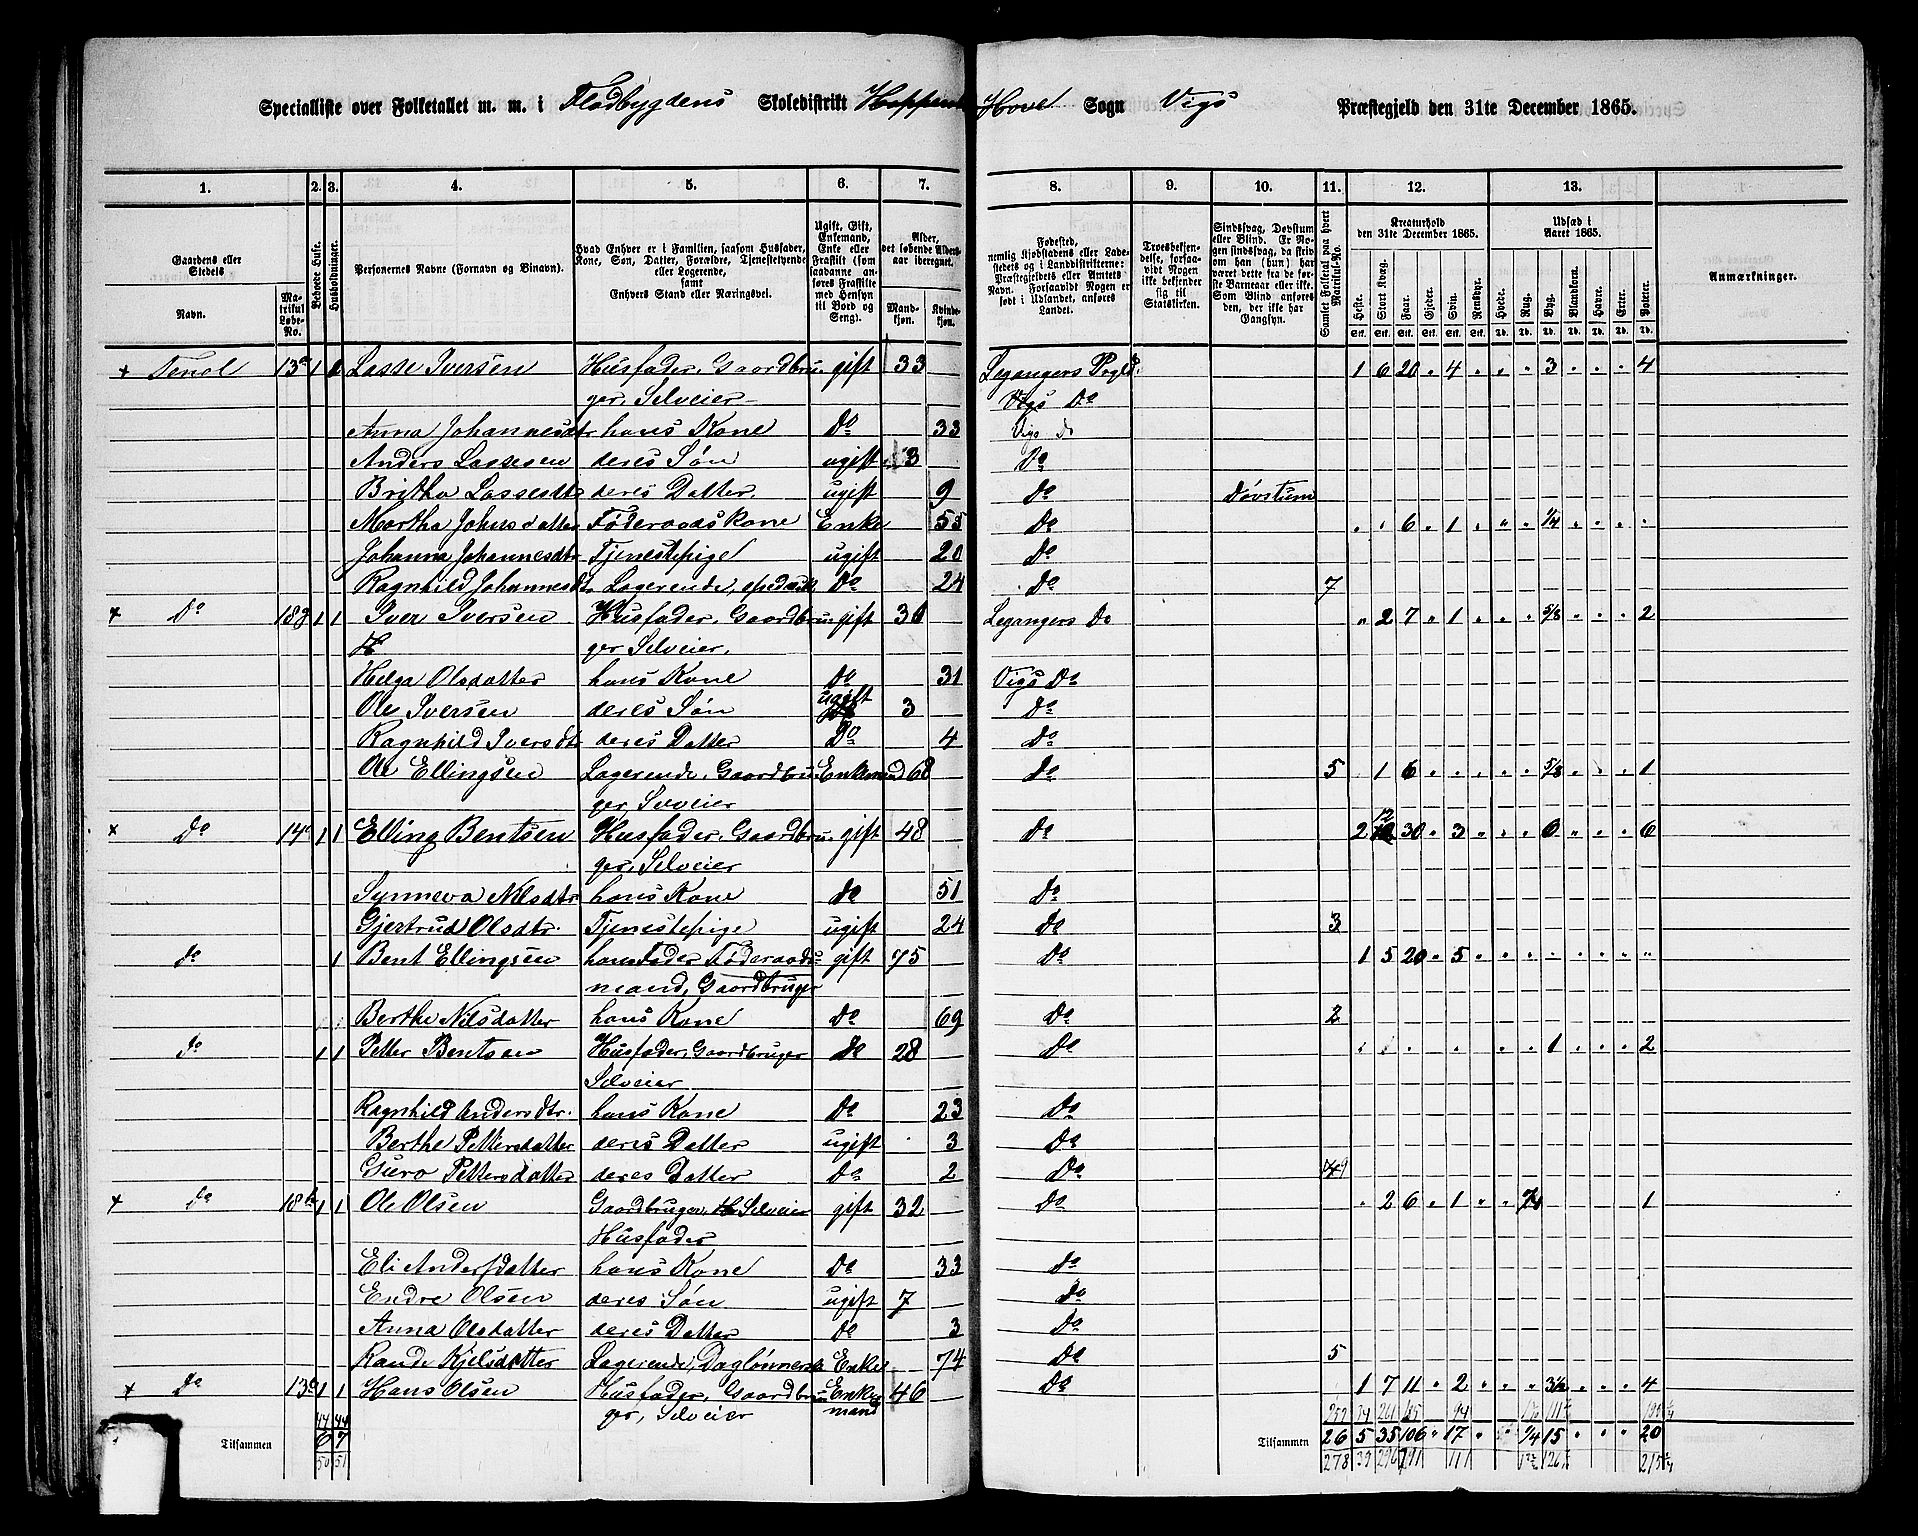 Specialliste over Folketallet m. m. i Flodbygdens Skoledistrikt Hove Sogn Vigs Præstegjeld den 31te December 1865.
1. 2. 3. 4. 5. 6. 7. 8. 9. 10. 11. 12. 13.
Gaardens eller Stedets
Navn.
Matrikul Løbe-No.
Beboede Huse.
Husholdninger.
Personernes Navne (Fornavn og Binavn).
Hvad Enhver er i Familien, saasom Husfader, Kone, Søn, Datter, Forældre, Tjenestetyende eller Logerende, samt Enhvers Stand eller Næringsvei.
Ugift, Gift, Enkemand, Enke eller Fraskilt (som saadanne anføres Fraskilte med Hensyn til Bord og Seng).
Alder, det løbende Aldersaar iberegnet.
Mandkjøn. Kvindekjøn.
Fødested, nemlig Kjøbstadens eller Ladestedets og i Landdistrikterne: Præstegjeldets eller Amtets Navn. Forsaavidt Nogen er født i Udlandet, anføres Landet.
Troesbekjendelse, forsaavidt Nogen ikke bekjender sig til Statskirken.
Sindssvag, Døvstum eller Blind. Er Nogen sindssvag, da skrives om han (hun) har været dette fra de første Barneaar eller ikke. Som Blind anføres den, der ikke har Gangsyn.
Samlet Folketal paa hvert Matrikul-No.
Kreaturhold den 31te December 1865.
Heste. Stort Kvæg. Faar. Gjeder. Sviin. Rensdyr.
Udsæd i Aaret 1865.
Hvede. Rug. Byg. Blandkorn. Havre. Erter. Poteter.
Anmærkninger.
+ Tenol 13a 1 Lasse Iversen Husfader, Gaardbru- gift 33 Legangers Pgld. 1 6 20 4 3 4
ger, Selveier Vigs Do
Anna Johannesdtr hans Kone Do 33 Vigs do
Anders Lassesen deres Søn ugift 3 Do
Britha Lassesdtr deres Datter ugift 9 Do Døvstum
Martha Johersdatter Føderaadskone Enke 55 Do 6 1 1/4
Johanna Johannesdtr Tjenestepige ugift 20 Do
Ragnhild Johannesdtr Logerende, Do 24 Do 7
+ Do 1 1 Iver Iversen Husfader, Gaardbru- gift Legangers Do 2 7 1 5/8 2
ger Selveier.
Helga Olsdatter hans Kone Do 31 Vigs Do
Ole Iversen deres Søn ugift 3 Do
Ragnhild Iversdtr deres Datter Do 4 Do
Ole Ellingsen Logerende, Gaardbru- Enkemand 68 do 5 1 6 5/8 1
ger, Selveier
+ Do 14 1 1 Elling Bentsen Husfader, Gaardbru- gift 48 Do 2 12 30 3 6 6
ger, Selveier
Synneva Nilsdtr hans Kone do 51 Do
Gjertrud Olsdtr. Tjenestepige ugift 24 Do 3
do 1 Bent Ellingsen hans Fader Føderaads- gift 75 Do 1 5 20 5
mand, Gaardbruger
Berthe Nilsdatter hans Kone Do 69 Do 2
do 1 1 Petter Bentsen Husfader, Gaardbruger do 28 Do 1 2
Selveier
Ragnhild Andersdtr. hans Kone Do 23 Do
Berthe Pettersdatter deres Datter ugift 3 Do
Guro Pettersdatter deres Datter Do 2 Do
+ do 18b 1 1 Ole Olsen Gaardbruger, Selveier gift 32 Do 2 6 1 1/4 1
Husfader
Eli Andersdatter hans Kone Do 33 Do
Endre Olsen deres Søn ugift 7 Do
Anna Olsdatter deres Datter do 3 Do
Rande Kjelsdatter Logerende, Daglønnerske Enke 74 Do 5
+ Do 1 1 Hans Olsen Husfader, Gaardbru- Enke- 46 Do 1 7 11 2 3 1/2 4
ger, Selveier mand
44 44
Tilsammen 6 7 Tilsammen 26 5 35 106 17 1/4 15 20
50 51 278